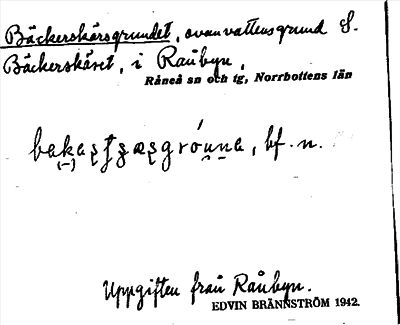 Bäckerskärsgrundet, ovanvattensgrund S.
Bäckerskäret, i Råbyn,
Råneå sn och tg, Norrbottens län
bf. n.
Uppgiften från Råbyn.
EDVIN BRÄNNSTRÖM 1942.